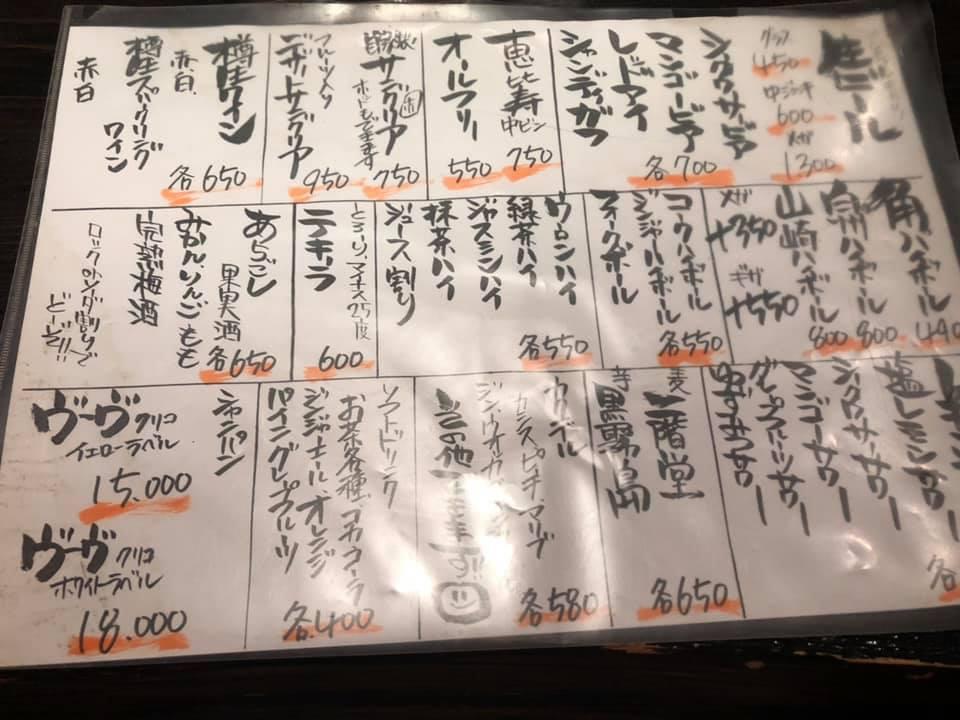 生ビール
グラス
450
中ジョッキ
600
メガ
1300
シークワーサービア
マンゴービア
レッドアイ
シャンディガフ
各700
恵比寿
中ビン
750
オールフリー
550
サングリア
赤
白
ホットもできます
750
フルーツ入り
デザートサングリア
950
樽生ワイン
赤白
樽生スパークリング
ワイン
赤白
各650
角ハイボール
440
白州ハイボール
800
山崎ハイボール
800
メガ
+350
ギガ
+550
コークハイボール
ジンジャーハイボール
フォークボール
各550
ウーロンハイ
緑茶ハイ
ジャスミンハイ
抹茶ハイ
ジュース割り
各550
とろ〜り、マイナス25度
テキーラ
600
果実酒
あらごし
みかんりんごもも
完熟梅酒
各650
ロックかソーダ割りで
どーぞ!!
塩レモンサワー
シークワーサーサワー
マンゴーサワー
グレープフルーツサワー
各
麦
二階堂
芋
黒霧島
各650
カクテル
カシス ピーチ マリブ
各580
その他
ソフトドリンク
お茶各種 コカコーラ
ジンジャエール オレンジ
パイン グレープフルーツ
各400
シャンパン
ヴーヴクリコ
イエローラベル
15.000
ヴーヴクリコ
ホワイトラベル
18.000